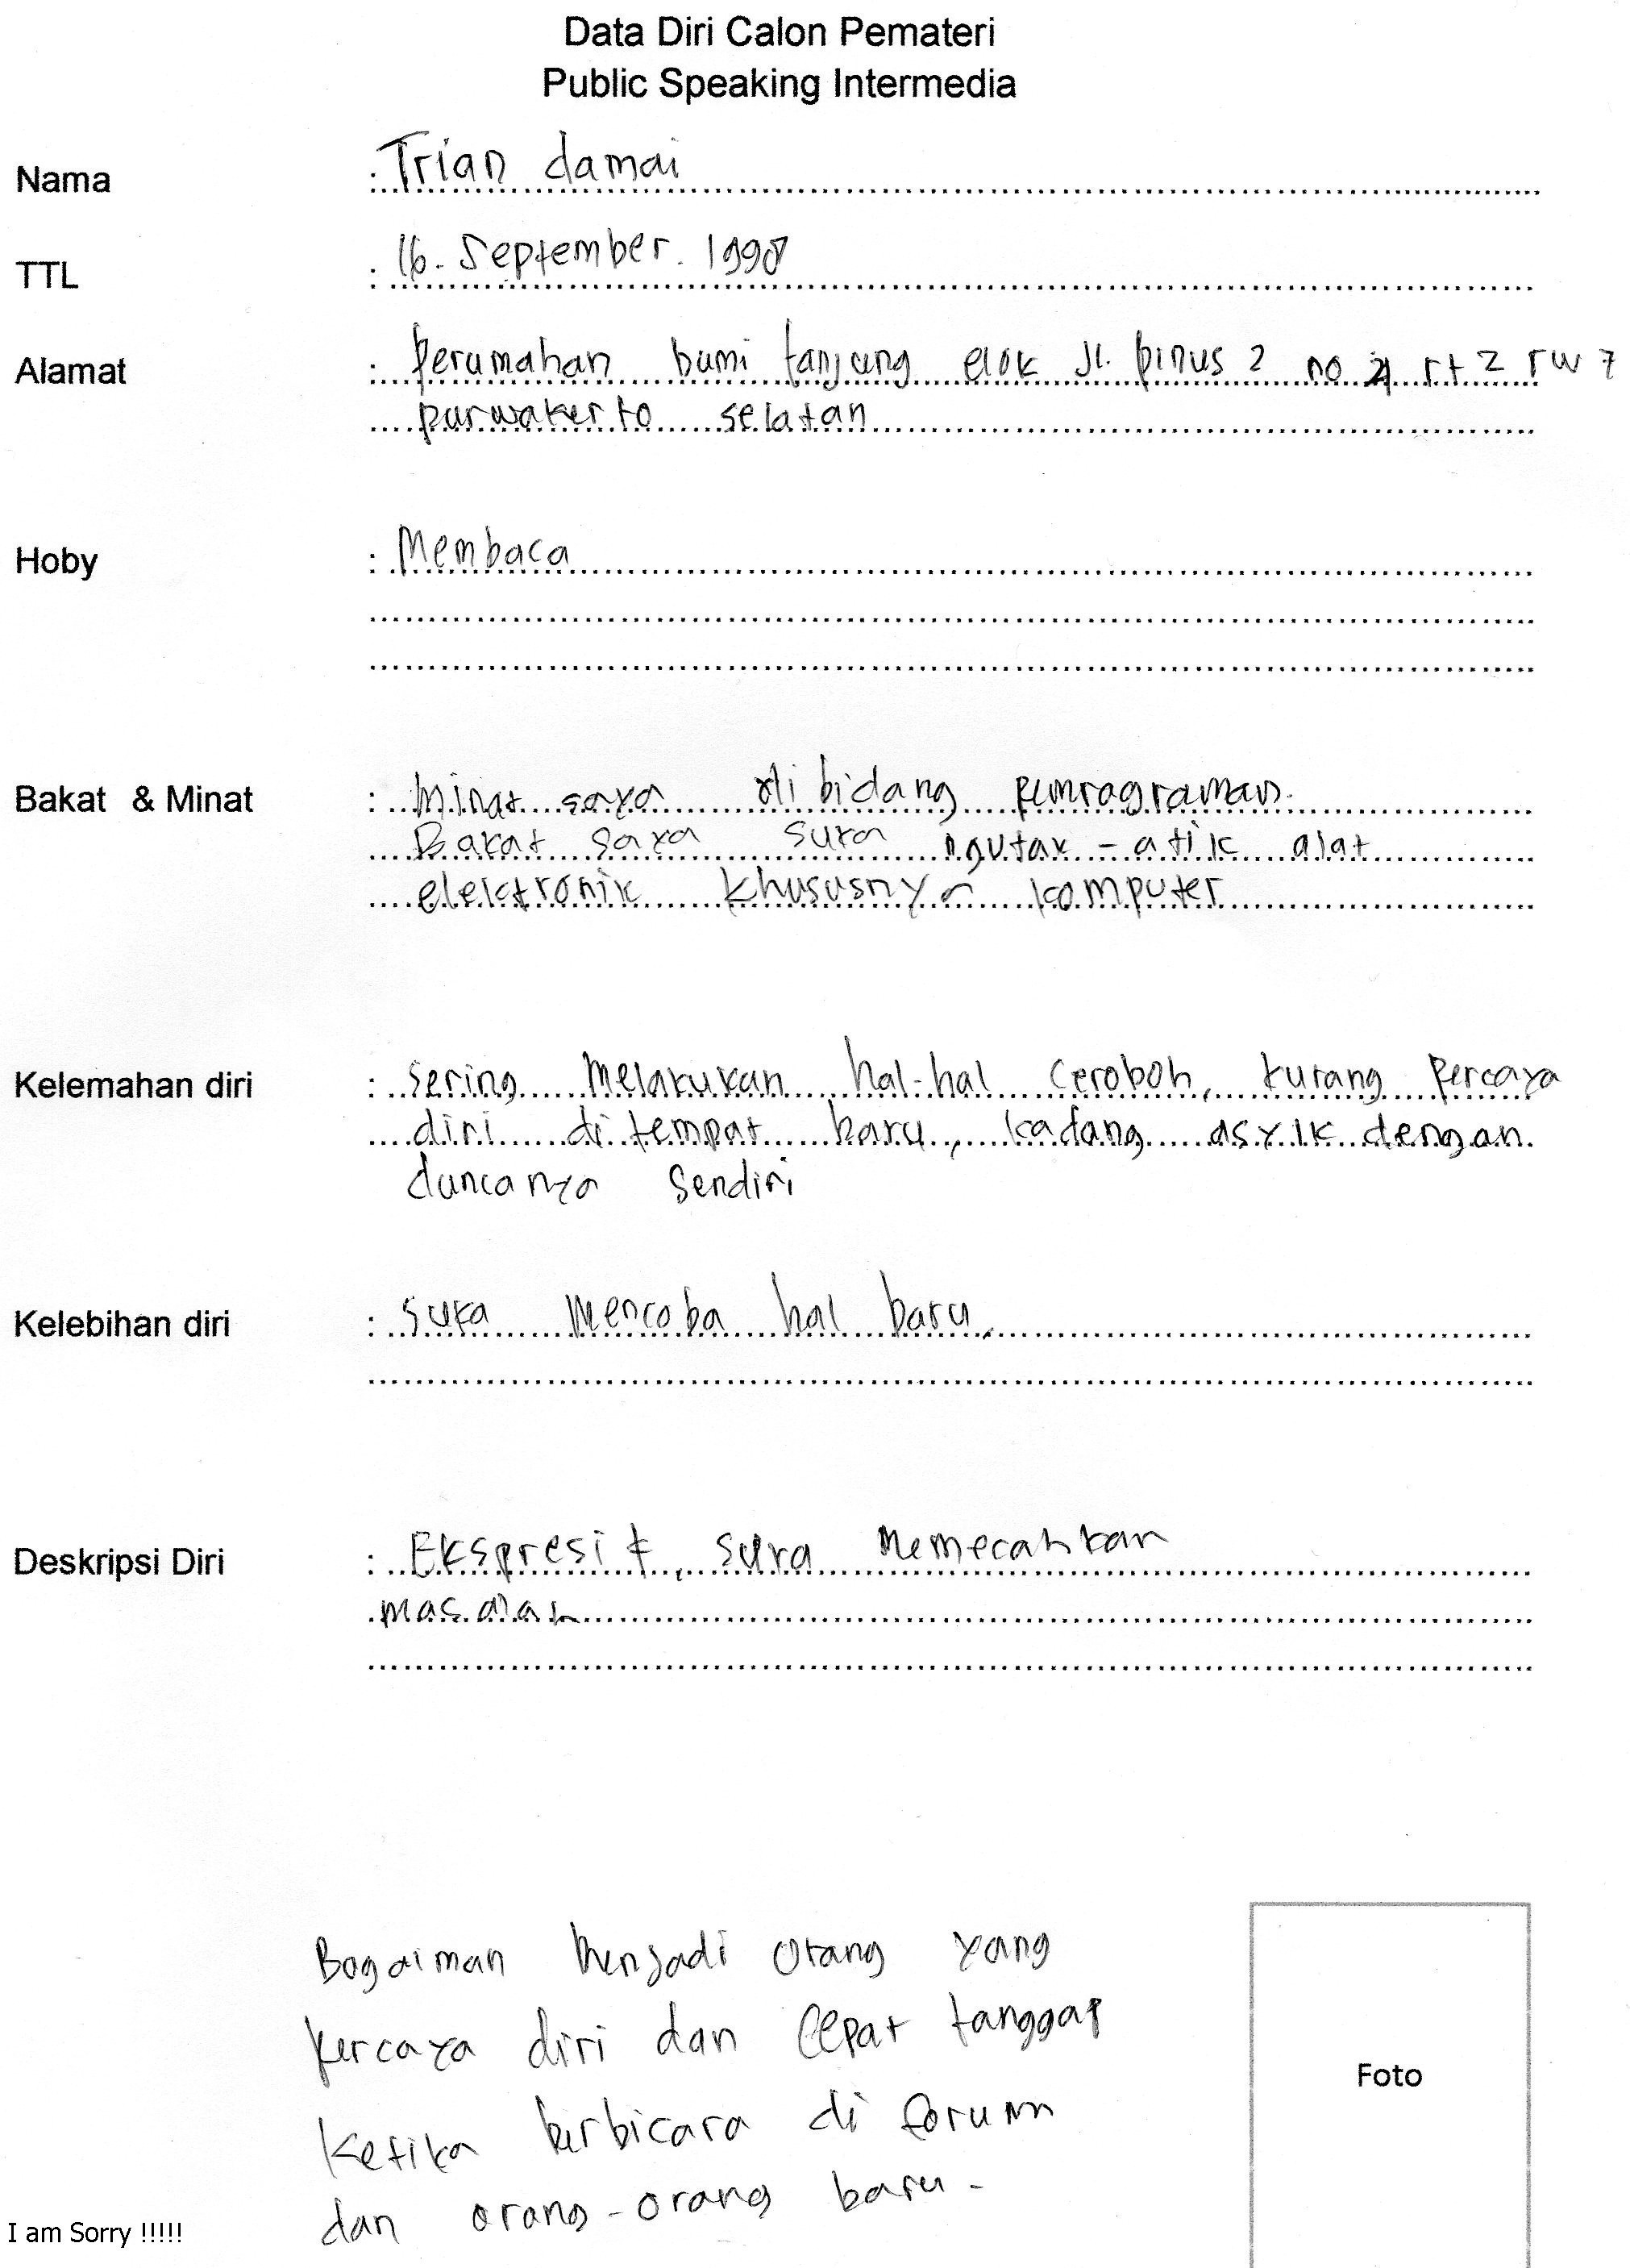 Data Diri Calon Pemateri
Public Speaking Intermedia
Nama : Trian damai
TTL : 16. September. 1998
Alamat : Perumahan bumi tanjung elok Jl. pinus 2 no rt 2 rw 7
purwakerto selatan
Hoby : Membaca
Bakat & Minat : Minat saya di bidang pemrograman.
Bakat saya suka ngutak - atik alat
elektronik khususnya komputer
Kelemahan diri : Sering melakukan hal-hal ceroboh, kurang percaya
diri di tempat baru, kadang asyik dengan
sendiri
Kelebihan diri : Suka mencoba hal baru.
Deskripsi Diri : Ekspresif, suka memecahkan
masalah
Bagaiman menjadi orang yang
percaya diri dan cepat tanggap
Ketika berbicara di forum
dan orang-orang baru.
Foto
I am Sorry !!!!!